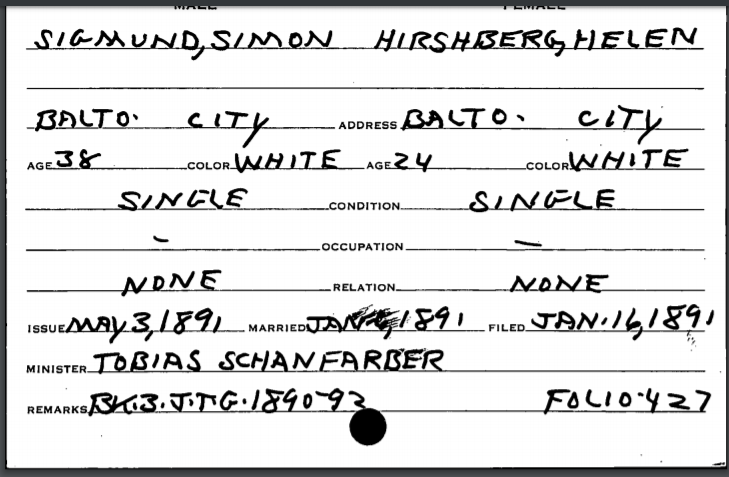 MALE FEMALE
SIGMUND, SIMON HIRSHBERG, HELEN
BALTO. CITY ADDRESS BALTO. CITY
AGE 38 COLOR WHITE AGE 24 COLOR WHITE
SINGLE CONDITION SINGLE
- OCCUPATION -
NONE RELATION NONE
ISSUE MAY 3, 1891 MARRIED JAN , 1891 FILED JAN. 16, 1891
MINISTER TOBIAS SCHANFARBER
REMARKS BK. 3. J.T.G. 1890-92 FOLIO-427